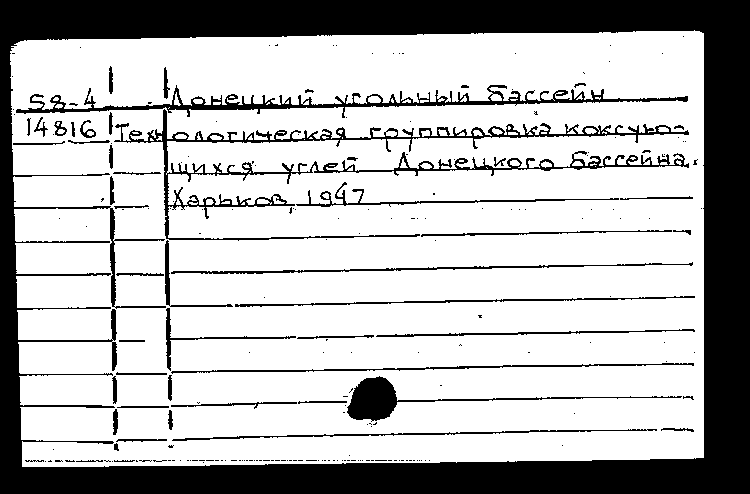 58-4 Донецкий угольный бассейн
14816 Технологическая группировка коксую-
щихся углей Донецкого бассейна.
Харьков, 1947